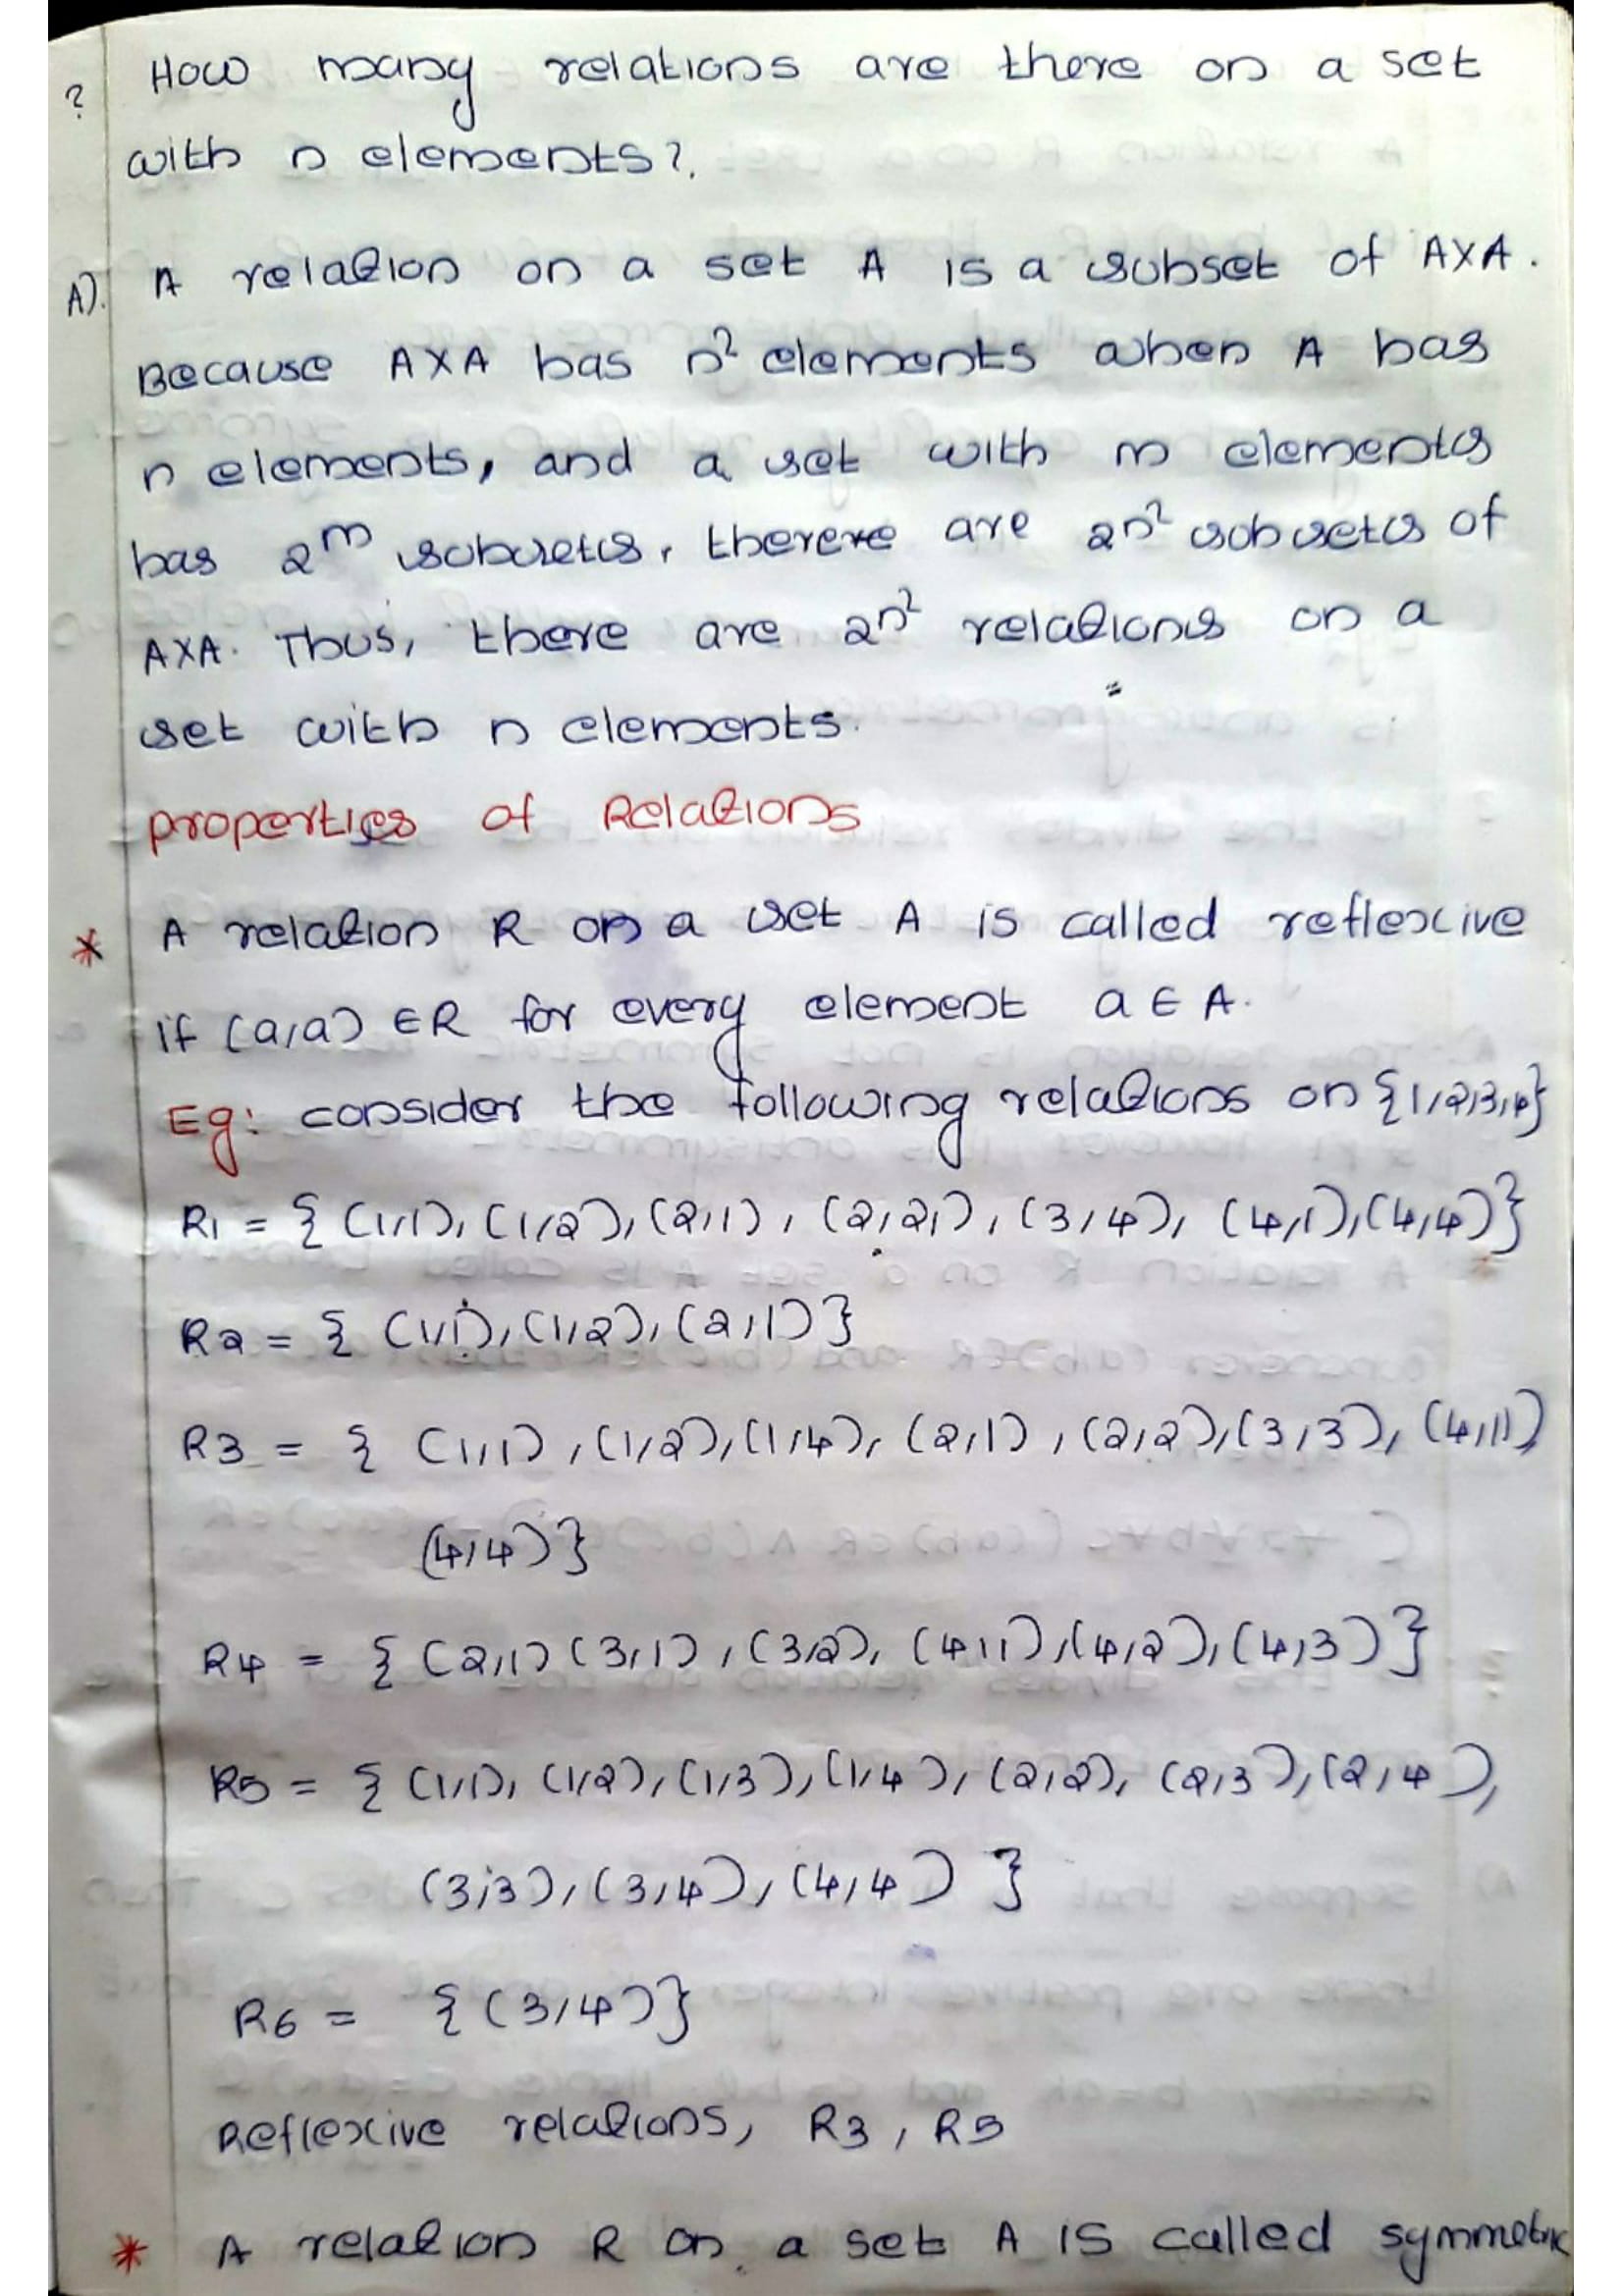 ? How many relations are there on a set
with n elements?.
A). A relation on a set A is a subset of AXA.
Because AXA has n² elements when A has
n elements, and a set with m elements
has 2^m subsets, therere are 2n² subsets of
AXA. Thus, there are 2n² relations on a
set with n elements.
properties of Relations
* A relation R on a set A is called reflexive
if (a,a) ∈R for every element a ∈ A.
Eg: consider the following relations on {1,2,3,4}
R1 = { (1,1), (1,2), (2,1), (2,2,), (3,4), (4,1), (4,4)}
R2 = { (1,1), (1,2), (2,1)}
R3 = { (1,1), (1,2), (1,4), (2,1), (2,2), (3,3), (4,1)
(4,4)}
R4 = { (2,1) (3,1), (3,2), (4,1), (4,2), (4,3)}
R5 = { (1,1), (1,2), (1,3), (1,4), (2,2), (2,3), (2,4),
(3,3), (3,4), (4,4) }
R6 = {(3,4)}
Reflexive relations, R3, R5
* A relation R on a set A is called symmetric